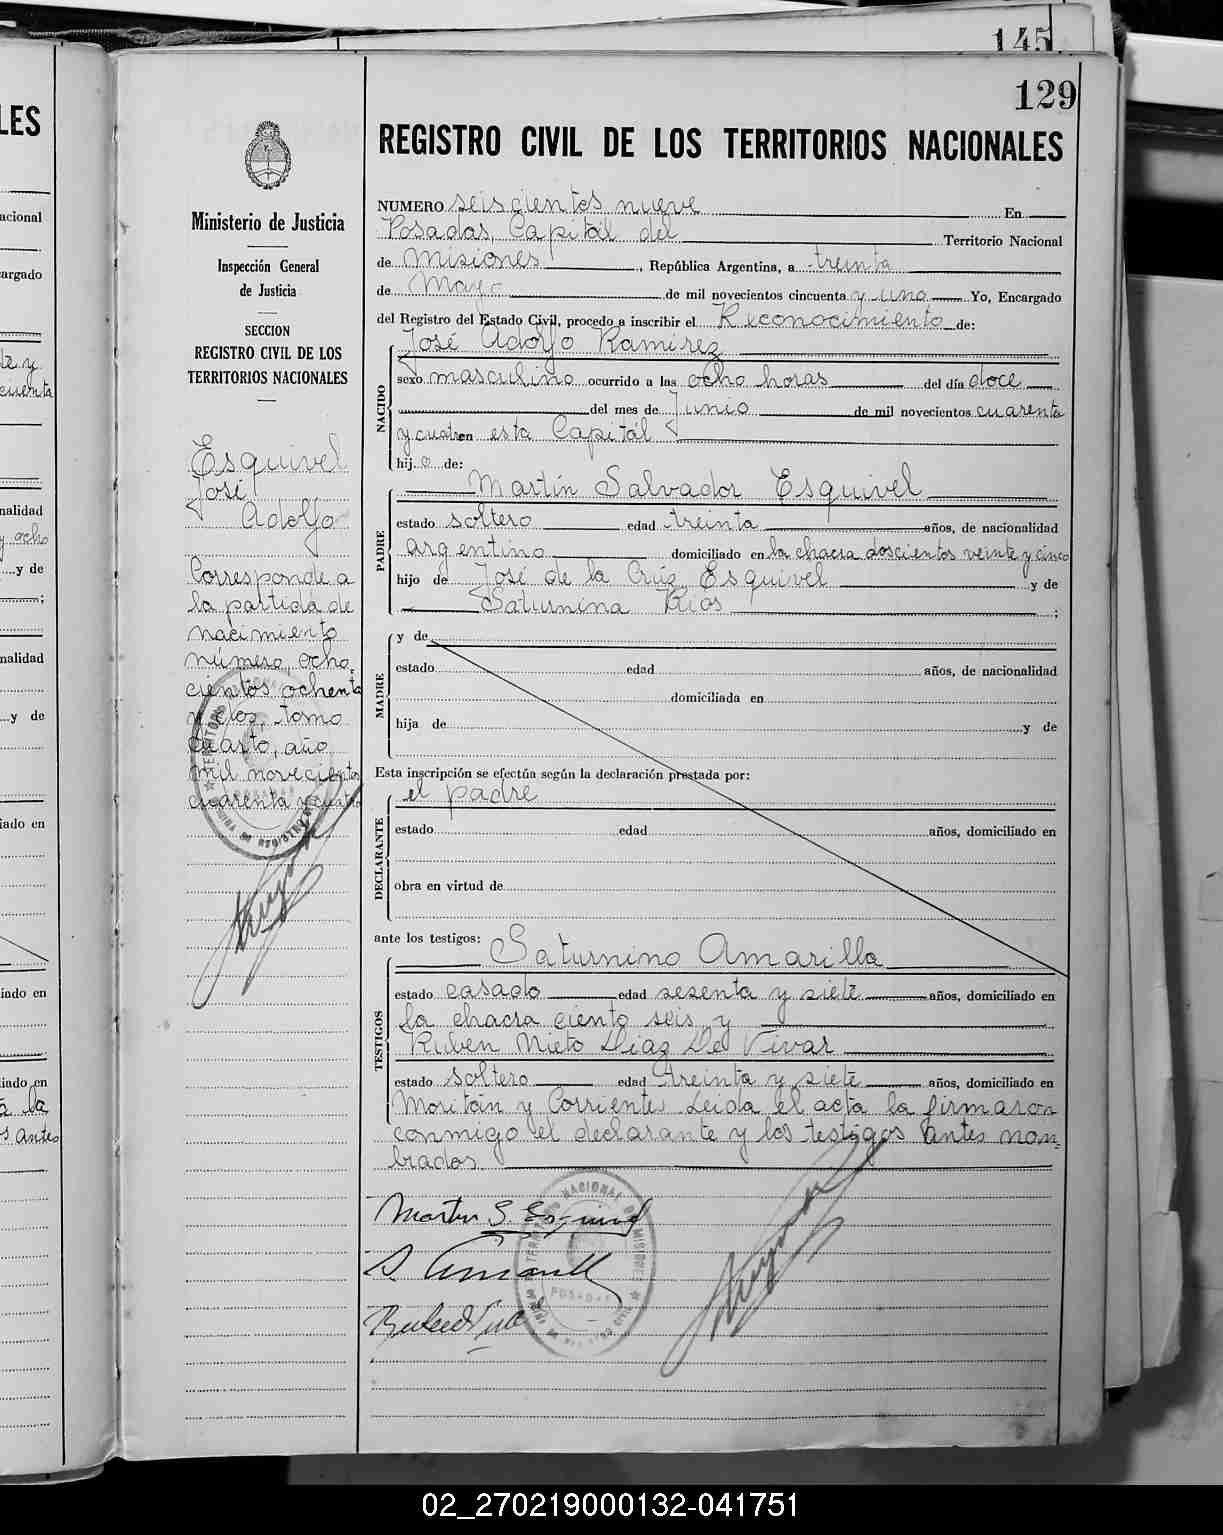 145
129
REGISTRO CIVIL DE LOS TERRITORIOS NACIONALES
Ministerio de Justicia
Inspección General
de Justicia
SECCION
REGISTRO CIVIL DE LOS
TERRITORIOS NACIONALES
Esquivel
José
Adolfo
Corresponde a
la partida de
nacimiento
número, ocho-
cientos ochenta
y dos, tomo
cuarto, año
mil novecientos
cuarenta y cuatro
NUMERO seiscientos nueve En
Posadas, Capitál del Territorio Nacional
de Misiones, República Argentina, a treinta
de Mayo de mil novecientos cincuenta y uno Yo, Encargado
del Registro del Estado Civil, procedo a inscribir el Reconocimiento de:
José Adolfo Ramírez
NACIDO
sexo masculino ocurrido a las ocho horas del día doce
del mes de Junio de mil novecientos cuarenta
y cuatro en esta Capitál
hijo de:
Martín Salvador Esquivel
PADRE
estado soltero edad treinta años, de nacionalidad
argentino domiciliado en la chacra doscientos veinte y cinco
hijo de José de la Crúz Esquivel y de
Saturnina Rios ;
MADRE
y de
estado edad años, de nacionalidad
domiciliada en
hija de y de
Esta inscripción se efectúa según la declaración prestada por:
el padre
DECLARANTE
estado edad años, domiciliado en
obra en virtud de
ante los testigos: Saturnino Amarilla
TESTIGOS
estado casado edad sesenta y siete años, domiciliado en
la chacra ciento seis y
Ruben Nieto Diaz De Vivar
estado soltero edad treinta y siete años, domiciliado en
Moritán y Corrientes. Leida el acta la firmaron
conmigo el declarante y los testigos antes nom-
brados
Martin S. Esquivel
S. Amarilla
TERRITORIO NACIONAL DE MISIONES
POSADAS
02_270219000132-041751